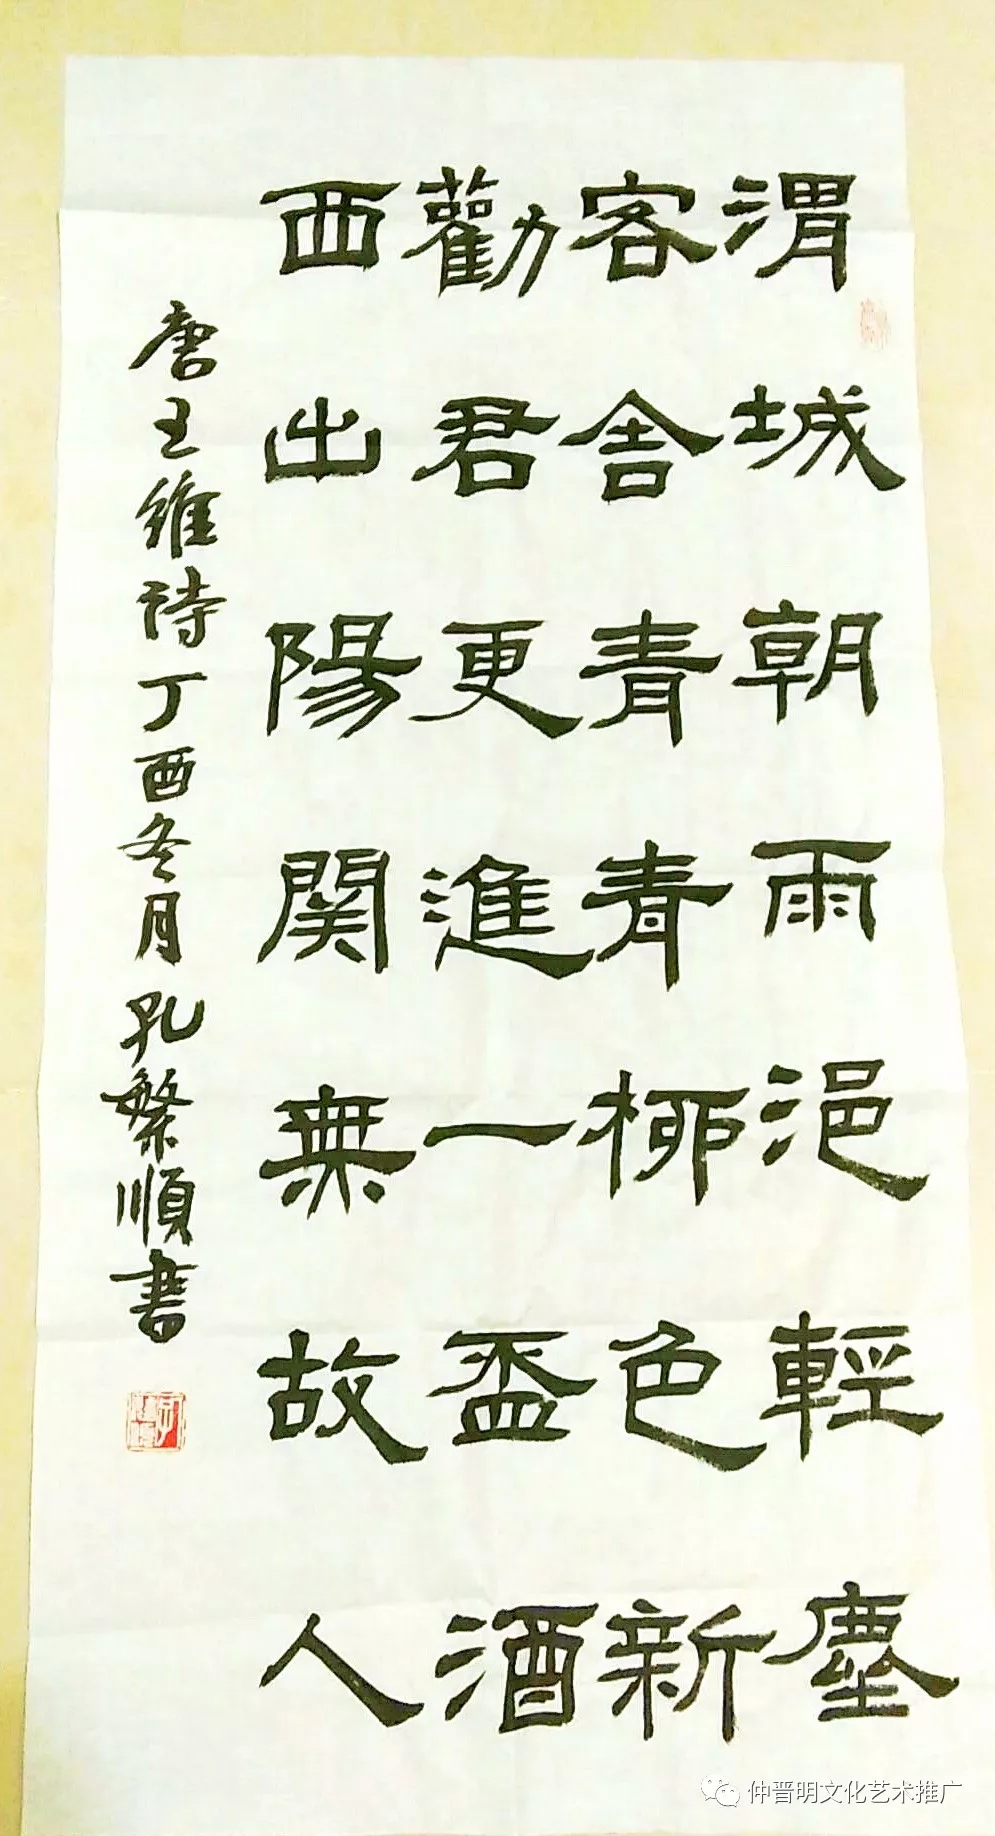 渭城朝雨浥輕塵
客舍青青柳色新
勸君更進一盃酒
西出陽關無故人
唐王維詩丁酉冬月孔繁順書
仲晋明文化艺术推广